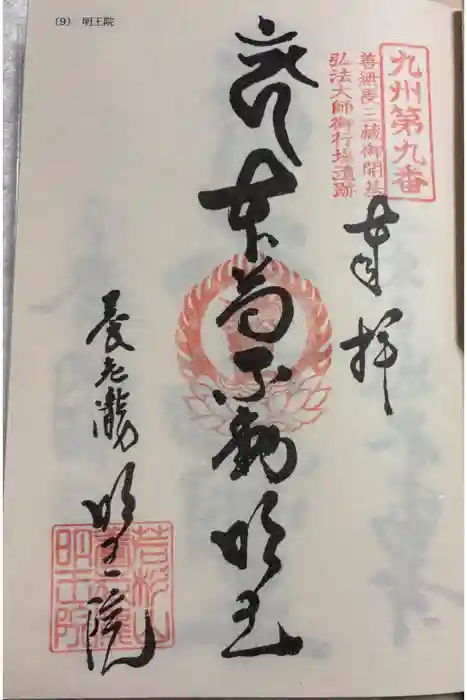 (9) 明王院
九州第九番
善無畏三藏御開基
弘法大師御行場遺跡
奉拝
本尊不動明王
養老瀧 明王院
若杉山
明王院